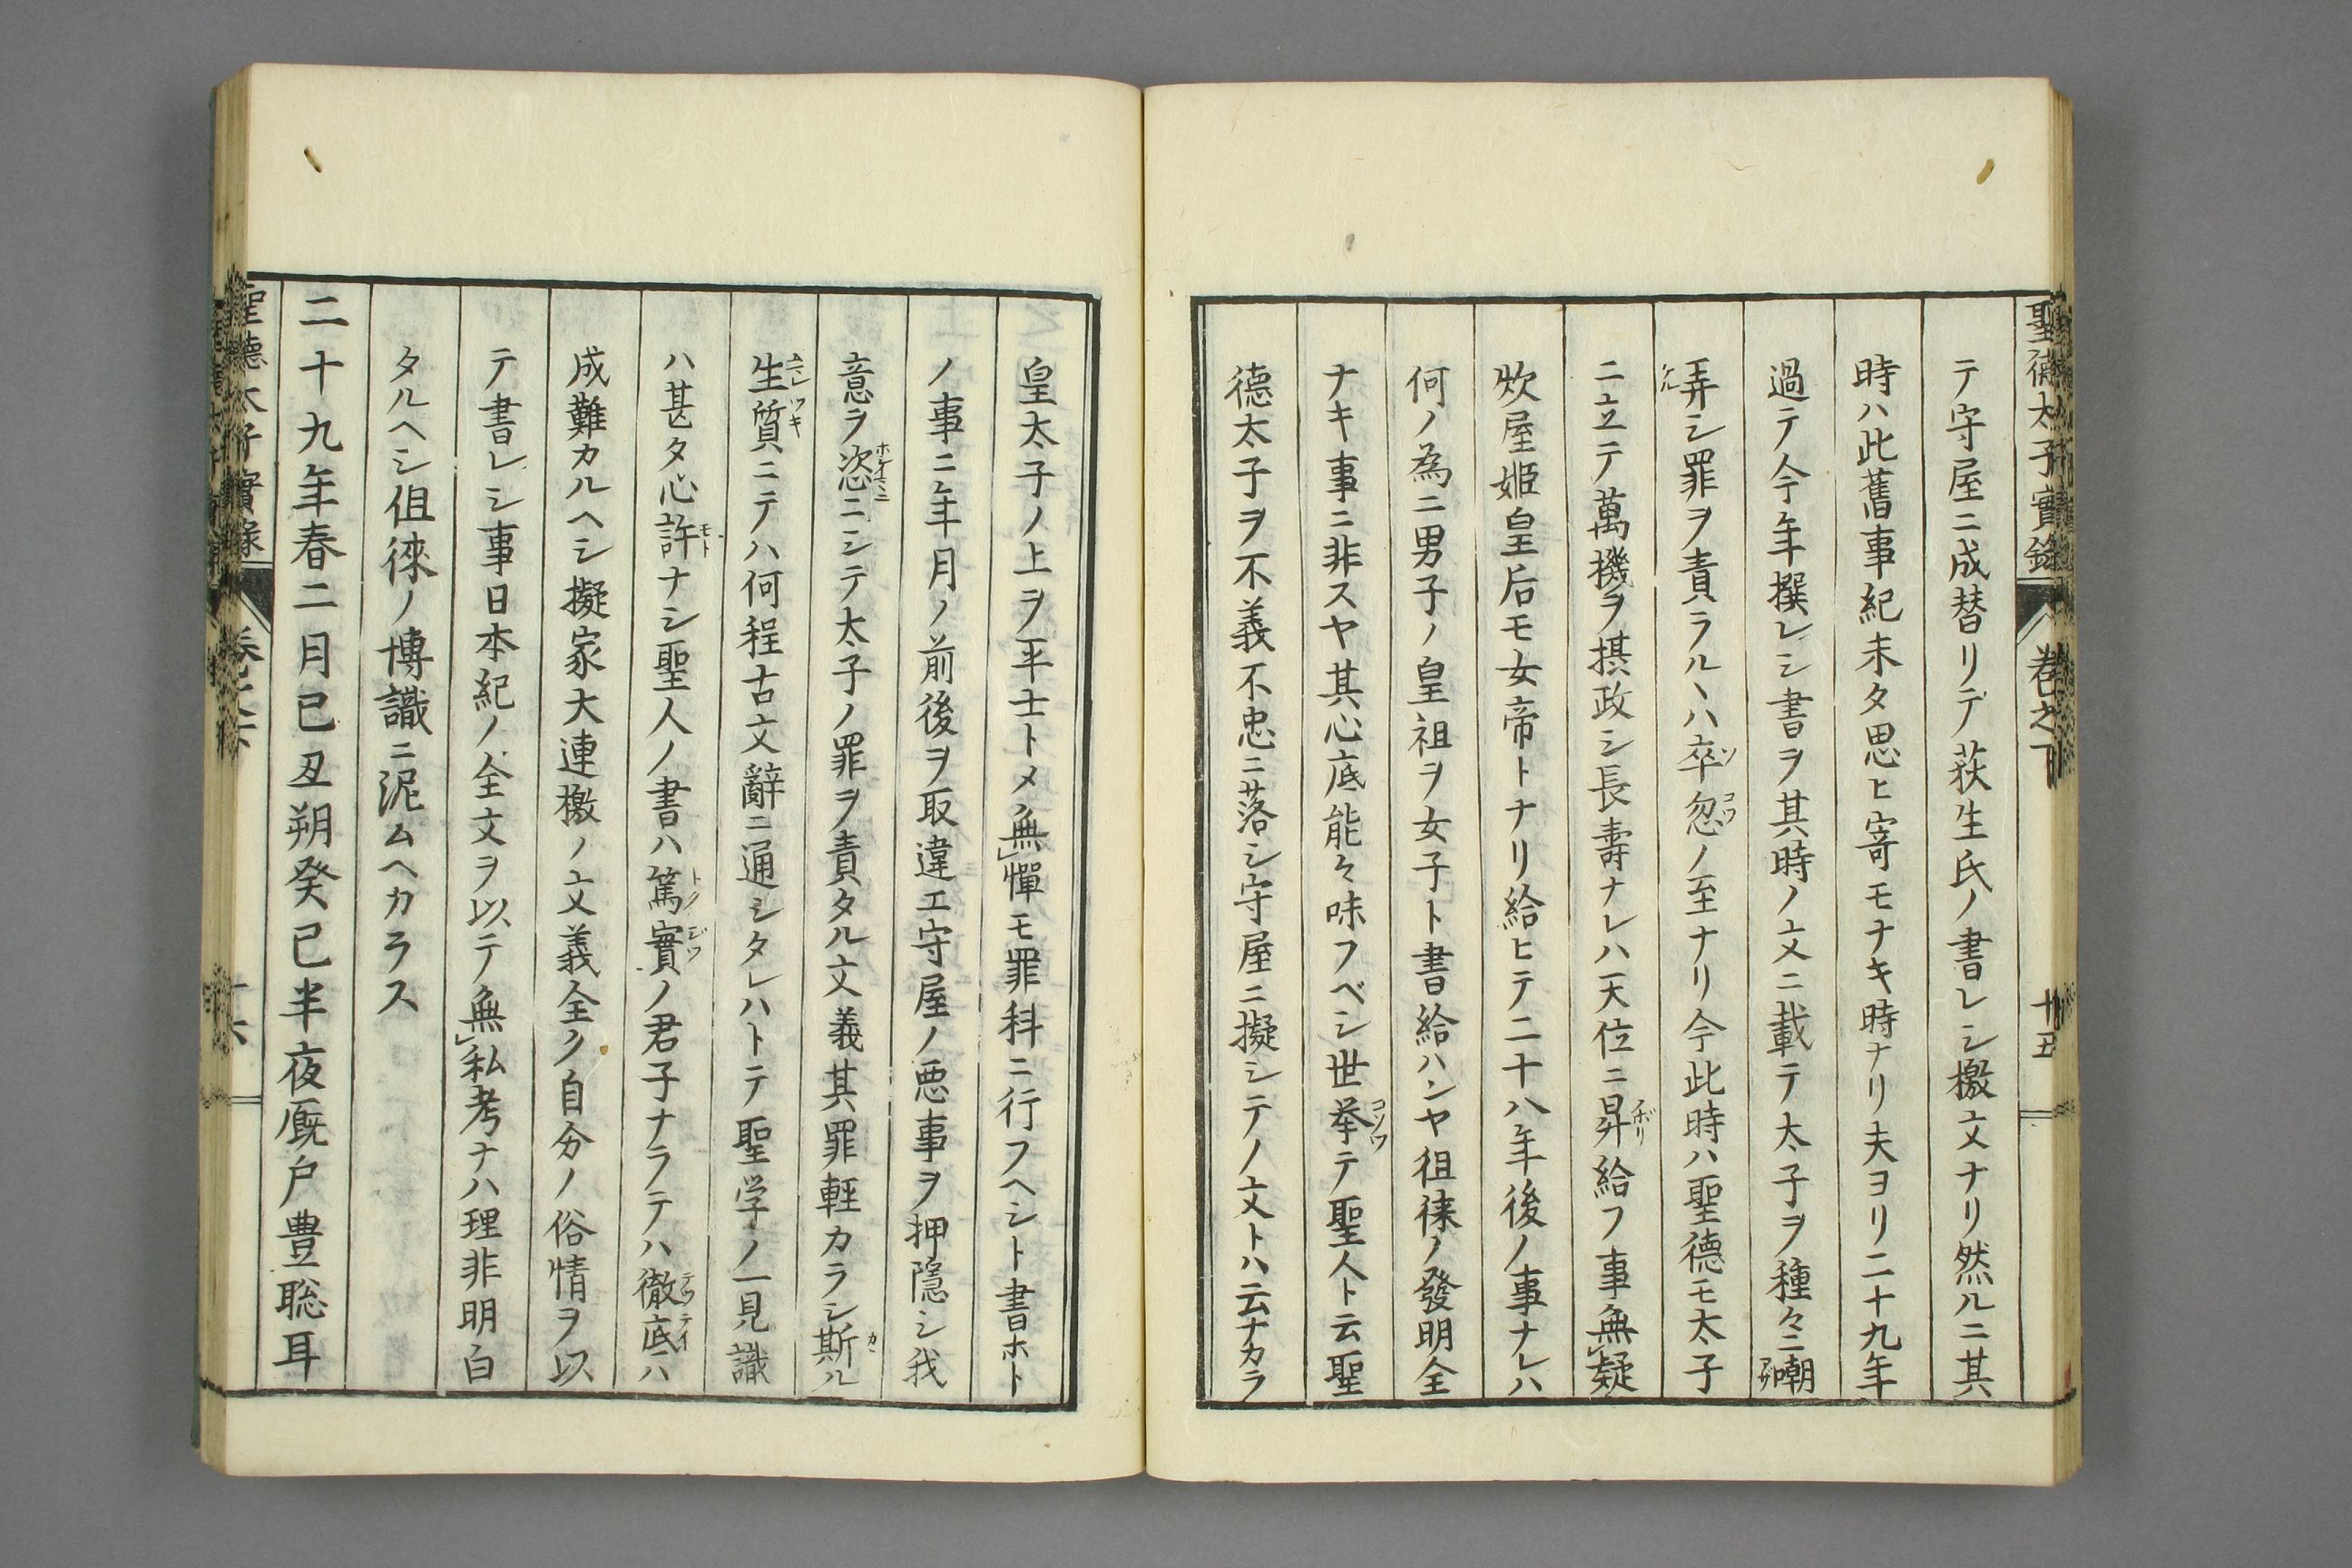 聖德太子實錄 卷之下 十五
テ守屋ニ成替リテ荻生氏ノ書レシ檄文ナリ然ルニ其
時ハ此舊事紀未タ思ヒ寄モナキ時ナリ夫ヨリ二十九年
過テ今年撰レシ書ヲ其時ノ文ニ載テ太子ヲ種々ニ嘲
弄シ罪ヲ責ラルヽハ卒忽ノ至ナリ今此時ハ聖德モ太子
ニ立テ萬機ヲ摂政シ長壽ナレハ天位ニ昇給フ事無疑
炊屋姫皇后モ女帝トナリ給ヒテ二十八年後ノ事ナレハ
何ノ為ニ男子ノ皇祖ヲ女子ト書給ハンヤ徂徠ノ發明全
ナキ事ニ非スヤ其心底能々味フベシ世挙テ聖人ト云聖
德太子ヲ不義不忠ニ落シ守屋ニ擬シテノ文トハ云ナカラ
皇太子ノ上ヲ平士トメ無憚モ罪科ニ行フヘシト書ホト
ノ事ニ年月ノ前後ヲ取違エ守屋ノ悪事ヲ押隠シ我
意ヲ恣ニシテ太子ノ罪ヲ責タル文義其罪軽カラシ斯ル
生質ニテハ何程古文辭ニ通シタレハトテ聖学ノ一見識
ハ甚タ心許ナシ聖人ノ書ハ篤實ノ君子ナラテハ徹底ハ
成難カルヘシ擬家大連檄ノ文義全ク自分ノ俗情ヲ以
テ書レシ事日本紀ノ全文ヲ以テ無私考ナハ理非明白
タルヘシ徂徠ノ博識ニ泥ムヘカラス
二十九年春二月己丑朔癸巳半夜厩戸豊聡耳
聖德太子實錄 卷之下 十六